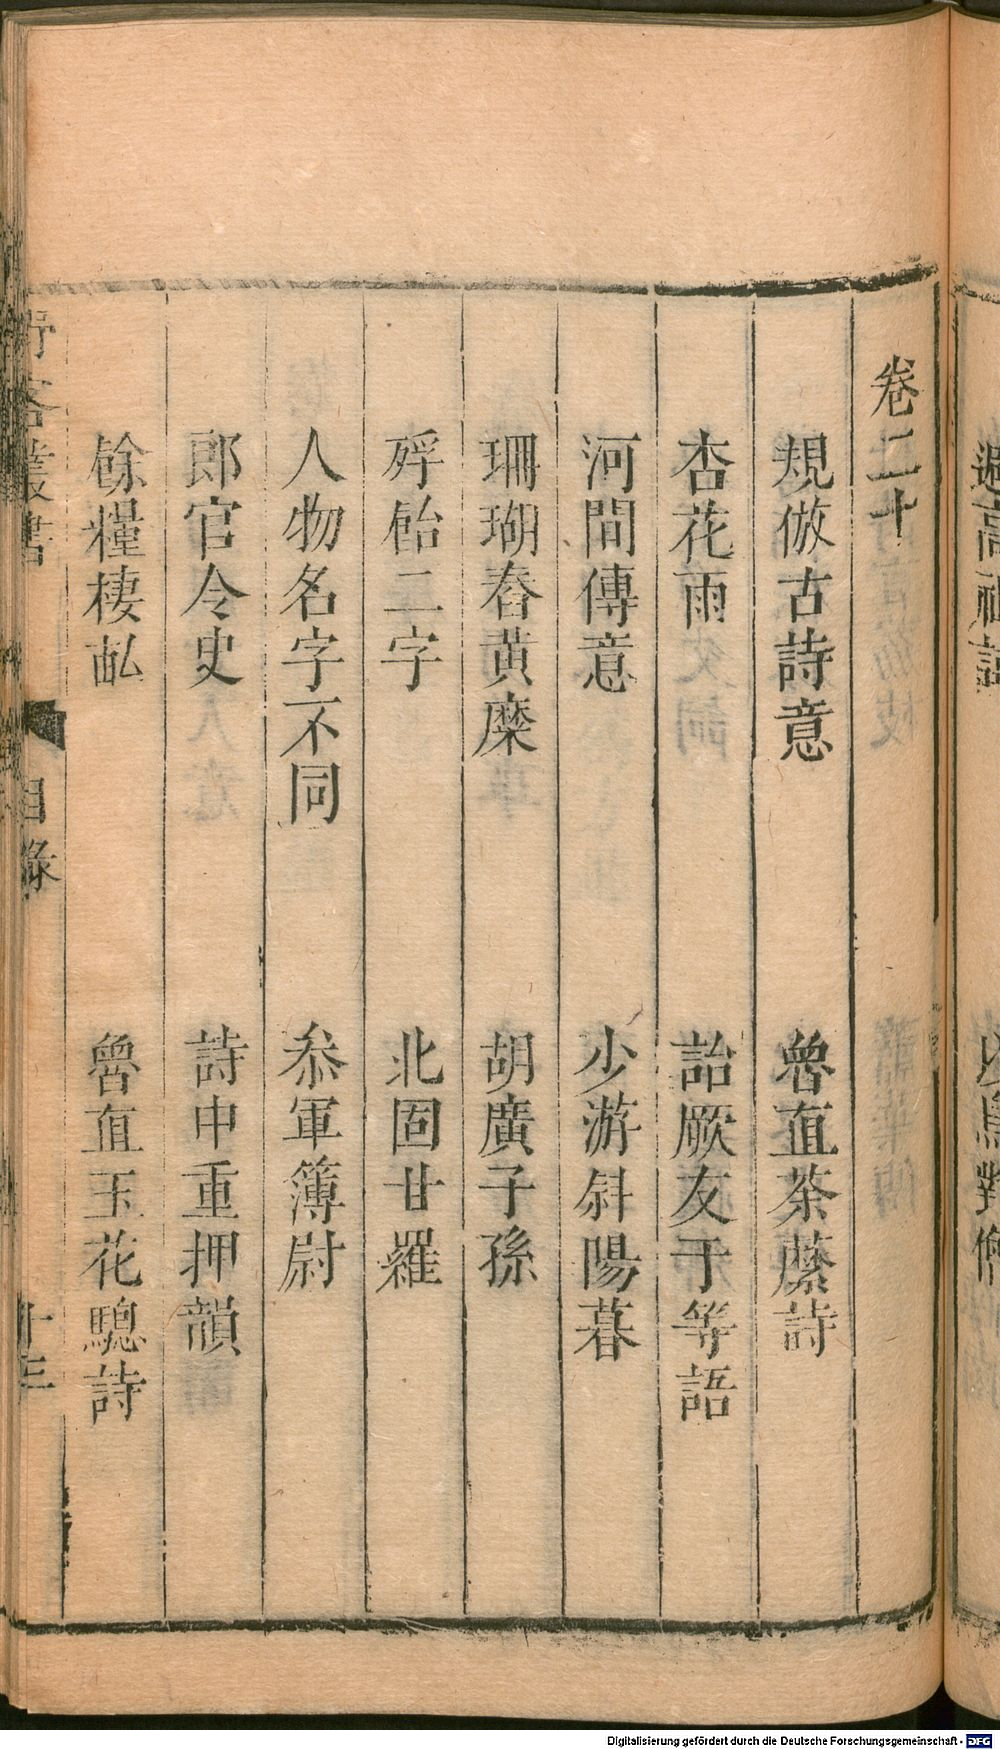 卷二十
規倣古詩意　魯直茶䕷詩
杏花雨　詒厥友于等語
河間傳意　少游斜陽暮
珊瑚舂黃糜　胡廣子孫
二字　北固甘羅
人物名字不同　叅軍簿尉
郎官令史　詩中重押韻
餘糧棲畝　魯直玉花驄詩
野客叢書　目錄　十三
Digitalisierung gefördert durch die Deutsche Forschungsgemeinschaft - DFG